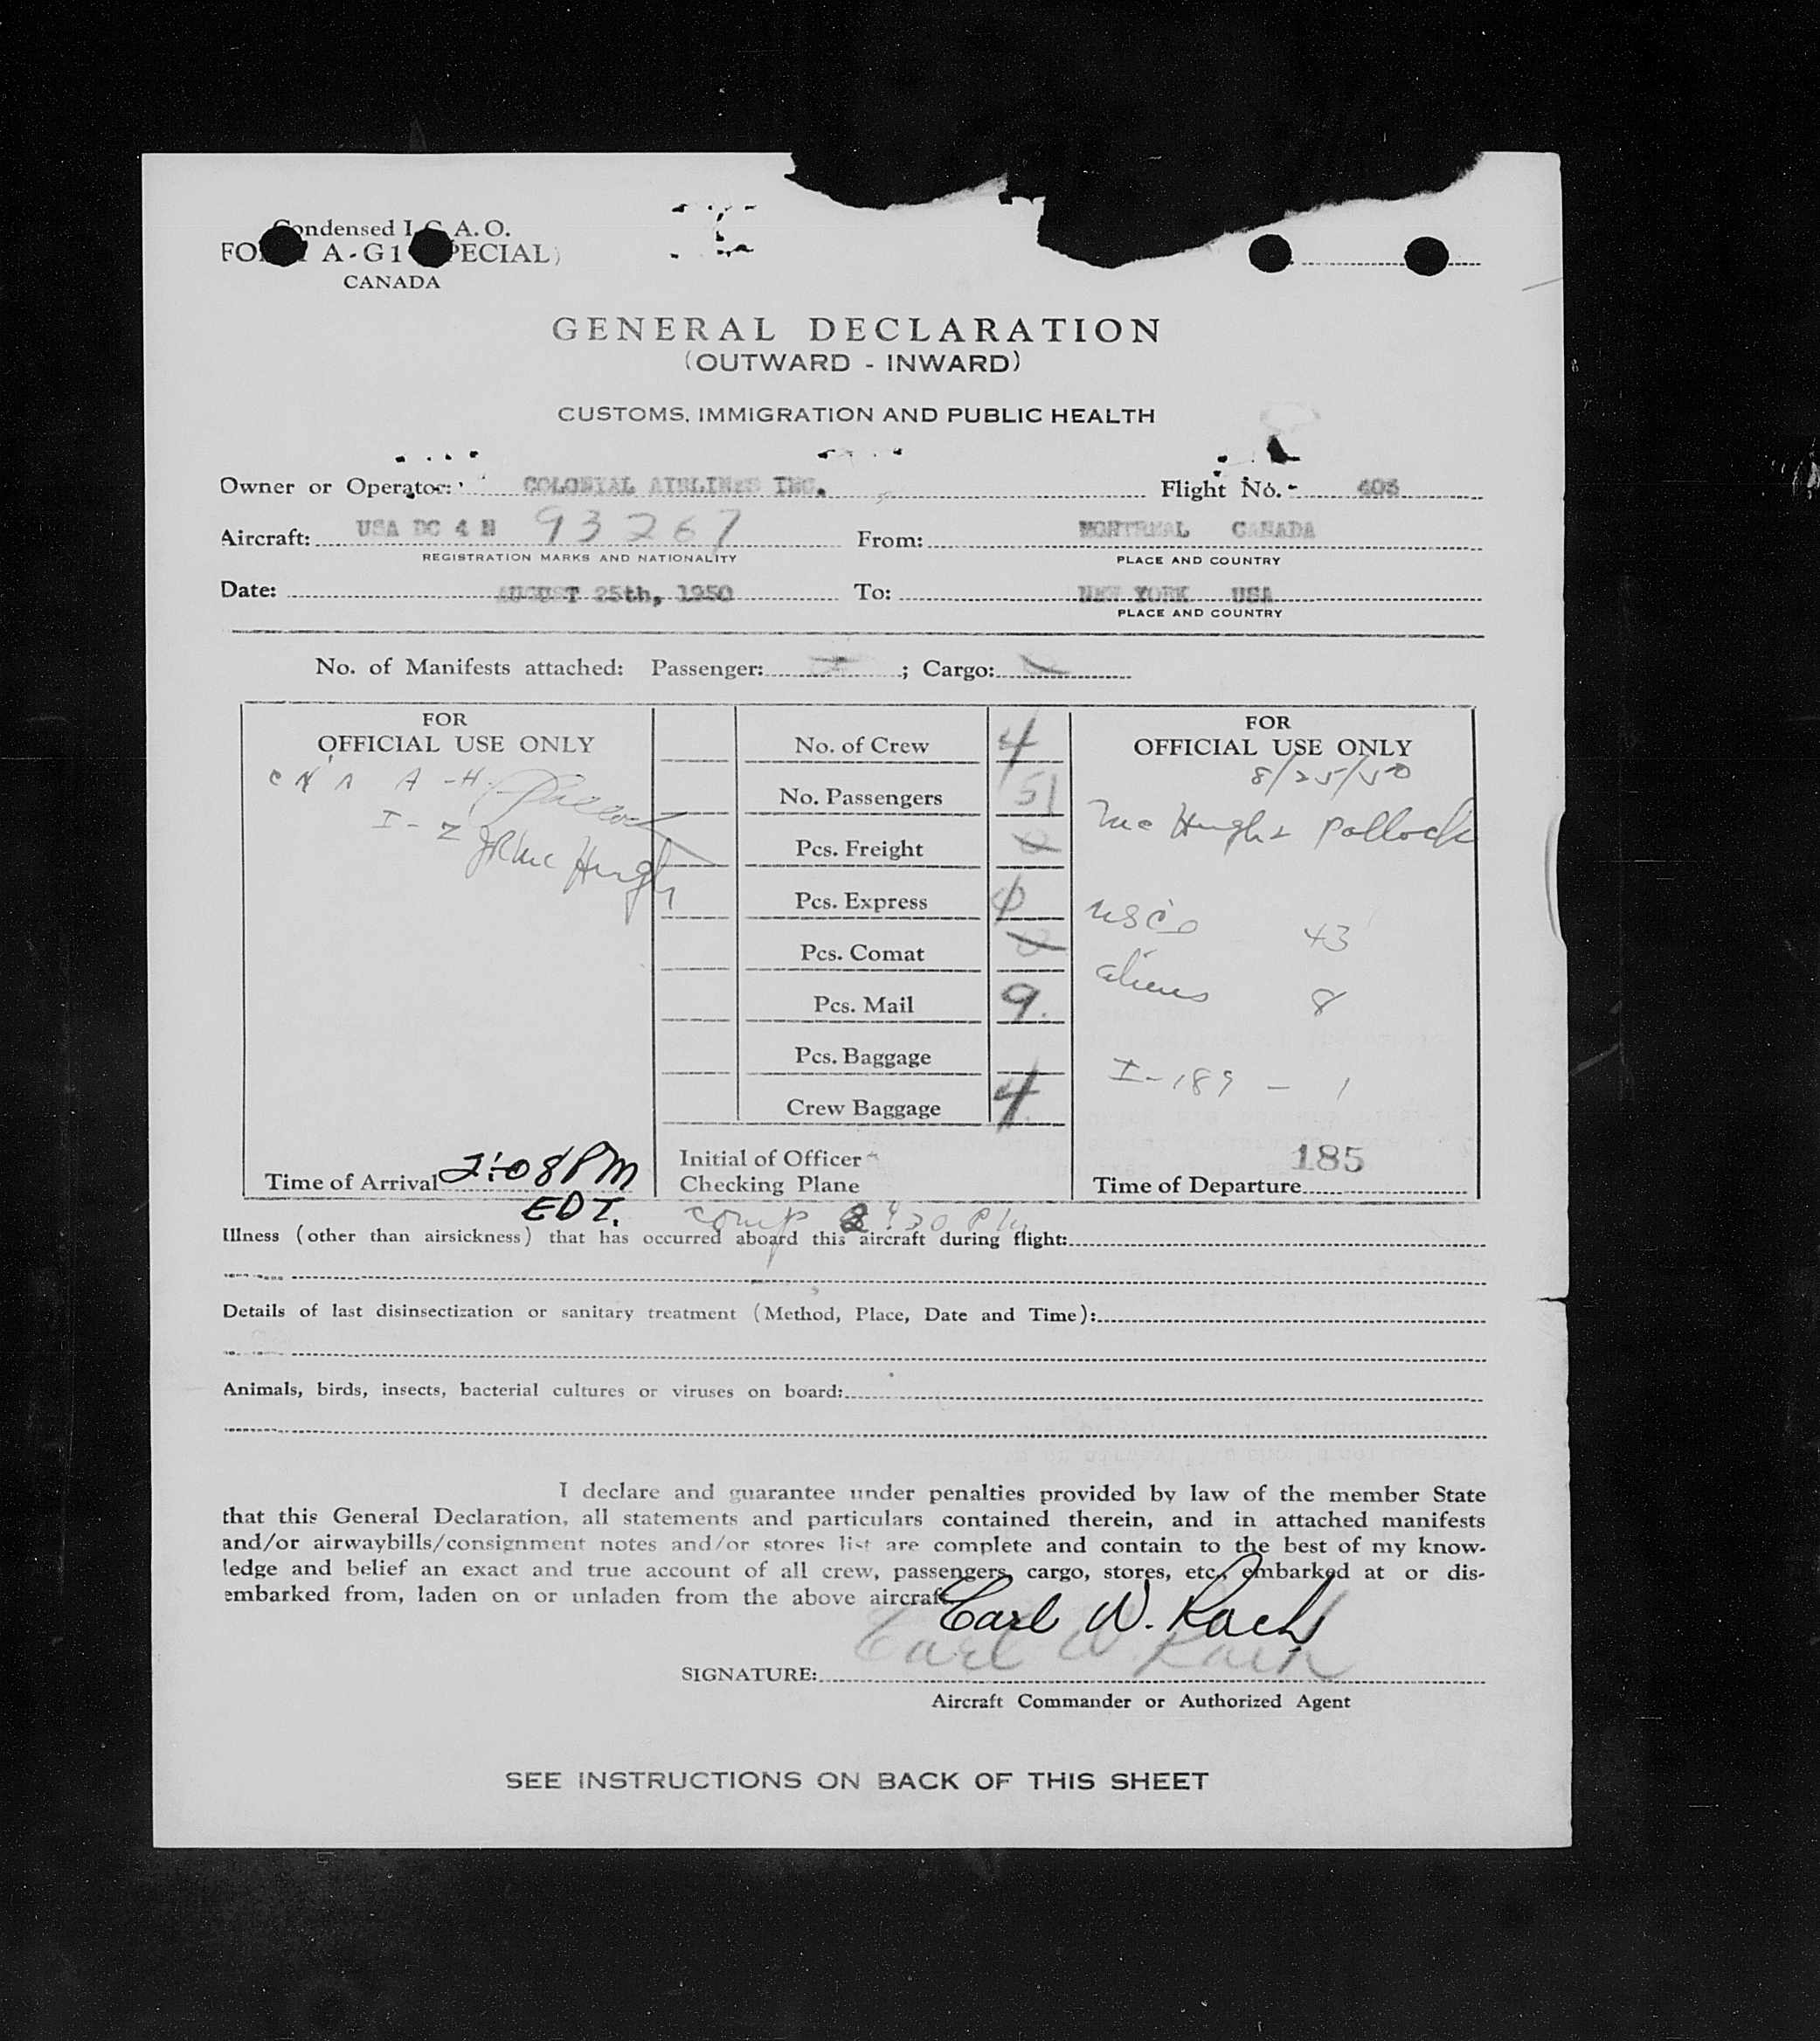 Condensed I.C.A.O.
FORM A-G1 (SPECIAL)
CANADA
GENERAL DECLARATION
(OUTWARD - INWARD)
CUSTOMS, IMMIGRATION AND PUBLIC HEALTH
Owner or Operator: COLONIAL AIRLINES INC. Flight No. 403
Aircraft: USA DC 4 N 93267 From: MONTREAL CANADA
REGISTRATION MARKS AND NATIONALITY PLACE AND COUNTRY
Date: AUGUST 25th, 1950 To: NEW YORK USA
PLACE AND COUNTRY
No. of Manifests attached: Passenger: ; Cargo:
FOR
OFFICIAL USE ONLY
A-H
I-Z JR McHugh
Time of Arrival 2:08 PM
EDT.
No. of Crew 4
No. Passengers 51
Pcs. Freight 0
Pcs. Express 0
Pcs. Comat 0
Pcs. Mail 9.
Pcs. Baggage
Crew Baggage 4
Initial of Officer
Checking Plane
comp 2:30 PM
FOR
OFFICIAL USE ONLY
8/25/50
McHugh & Pollock
USCs 43
aliens 8
I-189 - 1
185
Time of Departure
Illness (other than airsickness) that has occurred aboard this aircraft during flight:
Details of last disinsectization or sanitary treatment (Method, Place, Date and Time):
Animals, birds, insects, bacterial cultures or viruses on board:
I declare and guarantee under penalties provided by law of the member State
that this General Declaration, all statements and particulars contained therein, and in attached manifests
and/or airwaybills/consignment notes and/or stores list are complete and contain to the best of my know-
ledge and belief an exact and true account of all crew, passengers, cargo, stores, etc., embarked at or dis-
embarked from, laden on or unladen from the above aircraft.
Carl W. Rach
Carl W. Rach
SIGNATURE:
Aircraft Commander or Authorized Agent
SEE INSTRUCTIONS ON BACK OF THIS SHEET